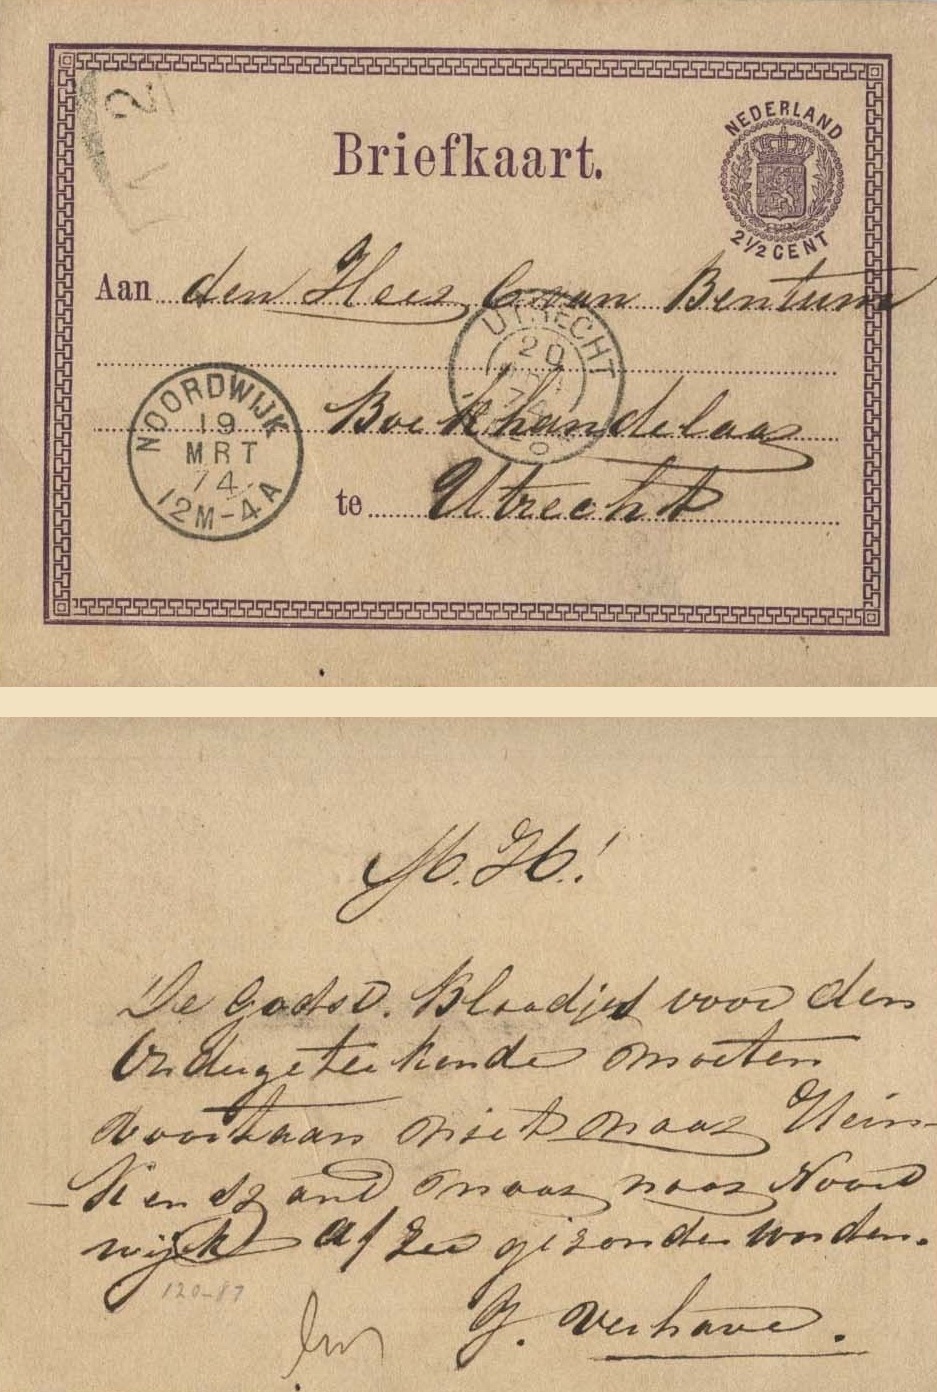 NEDERLAND
2½ CENT
2
Briefkaart.
Aan den Heer C van Bentum
UTRECHT
20
NOORDWIJK
19
MRT
74
12M-4A
Boekhandelaar
te Utrecht
M. H.!
De Godsd. Blaadjes voor den
Ondergeteekende moeten
voortaan niet naar Hein-
-kenszand maar naar Noord
wijk a/ Zee gezonden worden.
120-87
J. Verhave.